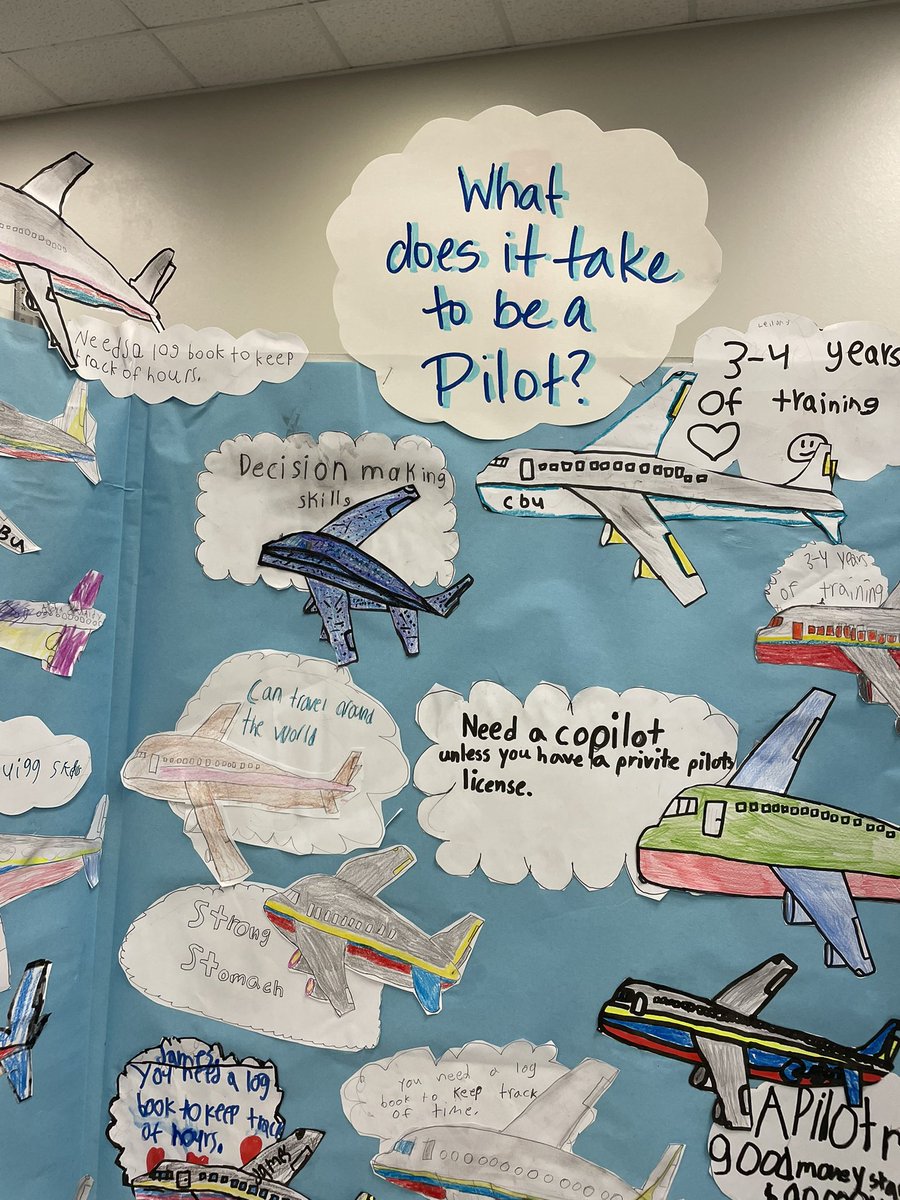 What
does it take
to be a
Pilot?
Needs a log book to keep
track of hours.
3-4 years
of training
Decision making
skills
cbu
3-4 years
of training
Can travel around
the world
Need a copilot
unless you have a privite pilots
license.
Strong
Stomach
James
You need a log
book to keep track
of hours.
James
you need a log
book to keep track
of time.
A Pilot
good money